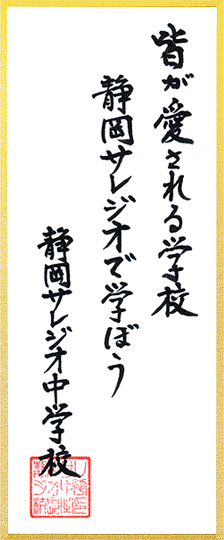 皆が愛される学校
静岡サレジオで学ぼう
静岡サレジオ中学校